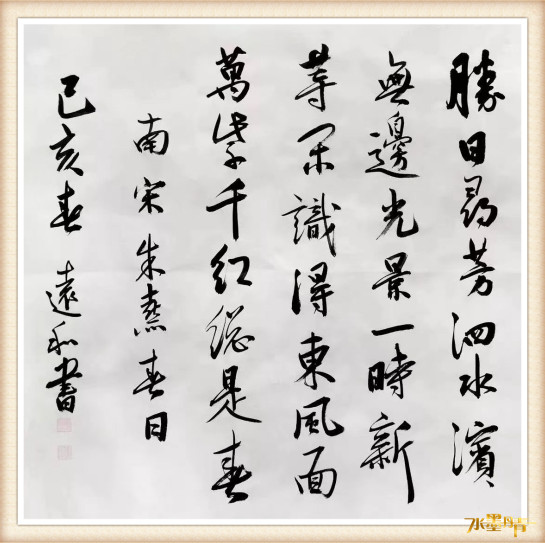 勝日尋芳泗水濱
無邊光景一時新
等閑識得東風面
萬紫千紅總是春
南宋朱熹春日
己亥春 遠和書
水墨丹青